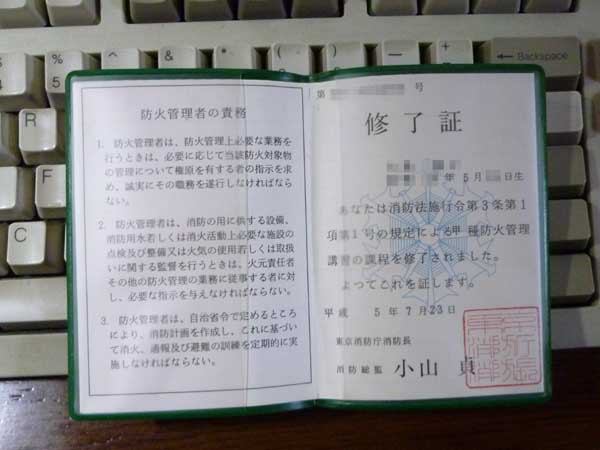 % 5
^ 6
& 7
+
Backspace
R
F
防火管理者の責務
1. 防火管理者は、防火管理上必要な業務を
行うときは、必要に応じて当該防火対象物
の管理について権原を有する者の指示を求
め、誠実にその職務を遂行しなければなら
ない。
2. 防火管理者は、消防の用に供する設備、
消防用水若しくは消火活動上必要な施設の
点検及び整備又は火気の使用若しくは取扱
いに関する監督を行うときは、火元責任者
その他の防火管理の業務に従事する者に対
し、必要な指示を与えなければならない。
3. 防火管理者は、自治省令で定めるところ
により、消防計画を作成し、これに基づい
て消火、通報及び避難の訓練を定期的に実
施しなければならない。
第 号
修了証
年 5月 日生
あなたは消防法施行令第3条第1
項第1号の規定による甲種防火管理
講習の課程を修了されました。
よつてこれを証します。
平成 5年7月23日
東京消防庁消防長
消防総監 小山 貞